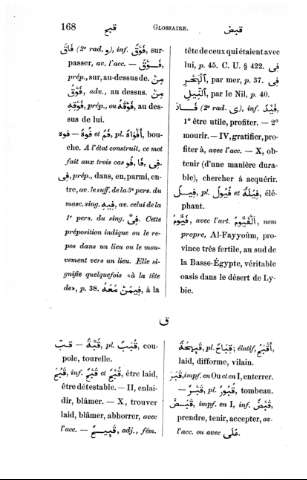 168 قبح GLOSSAIRE. قبض
فَاقَ (2e rad. و), inf. فَوْق, sur-
passer, av. l'acc. — فَوْقَ,
prép., sur, au-dessus de. مِنْ
فَوْق, adv., au dessus.
فَوْقِهِ, prép., ou فَوْقَهُ, au des-
sus de lui.
فوه — فُوهَة et فَم, pl. أَفْوَاه, bou-
che. A l'état construit, ce mot
fait aux trois cas فُو, فَا, فِي.
فِي, prép., dans, en, parmi, en-
tre, av. le suff. de la 3e pers. du
masc. sing. فِيهِ, av. celui de la
1e pers. du sing. فِيَّ. Cette
préposition indique ou le re-
pos dans un lieu ou le mou-
vement vers un lieu. Elle si-
gnifie quelquefois «à la tête
de», p. 38. فِيمَنْ مَعَهُ, à la
tête de ceux qui étaient avec
lui, p. 45. C. U. § 422. فِي
الْبَحْرِ, par mer, p. 37. فِي
النِّيلِ, par le Nil, p. 40.
فَادَ (2e rad. ي), inf. فَيْد,
1e être utile, profiter. — 2e
mourir. — IV, gratifier, pro-
fiter à, avec l'acc. — X, ob-
tenir (d'une manière dura-
ble), chercher à acquérir.
فِيل, pl. فُيُول et فِيَلَة, élé-
phant.
فَيُّوم, avec l'art. الْفَيُّوم, nom
propre, Al-Fayyoûm, pro-
vince très fertile, au sud de
la Basse-Égypte, véritable
oasis dans le désert de Ly-
bie.
ق
قبّ — قُبَّة, pl. قُبَب, cou-
pole, tourelle.
قَبُحَ, inf. قُبْح et قَبْح, être laid,
être détestable. — II, enlai-
dir, blâmer. — X, trouver
laid, blâmer, abhorrer, avec
l'acc. — قَبِيح, adj., fém.
قَبِيحَة, pl. قِبَاح; élatif, أَقْبَح,
laid, difforme, vilain.
قَبَرَ, impf. en Ou et en I, enterrer.
— قَبْر, pl. قُبُور, tombeau.
قَبَضَ, impf. en I, inf. قَبْض,
prendre, tenir, accepter, av.
l'acc. ou avec عَلَى